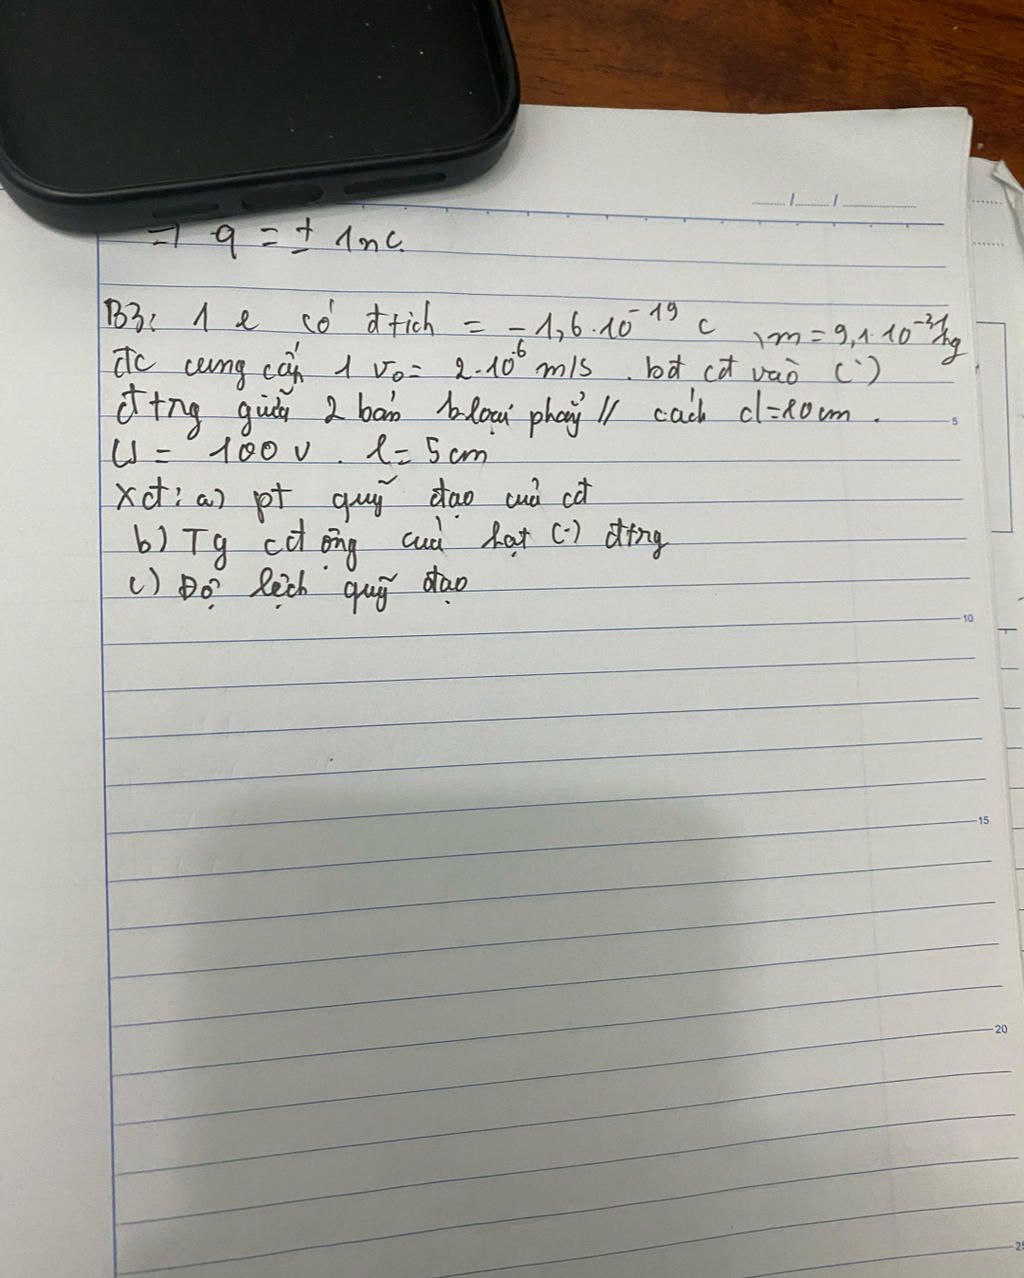 => q = ± 1nC.
B3: 1 e có đtích = -1,6.10^-19 C , m = 9,1.10^-31 kg
đc cung cấp 1 v₀ = 2.10^6 m/s . bđ cđ vào (-)
đtrg giữa 2 bản kloại phẳng // cách d=10cm .
U = 100 V . l = 5cm
Xđ: a) pt quỹ đạo của cđ
b) Tg cđ ộng của hạt (-) đtrg
c) Độ lệch quỹ đạo
5
10
15
20
25